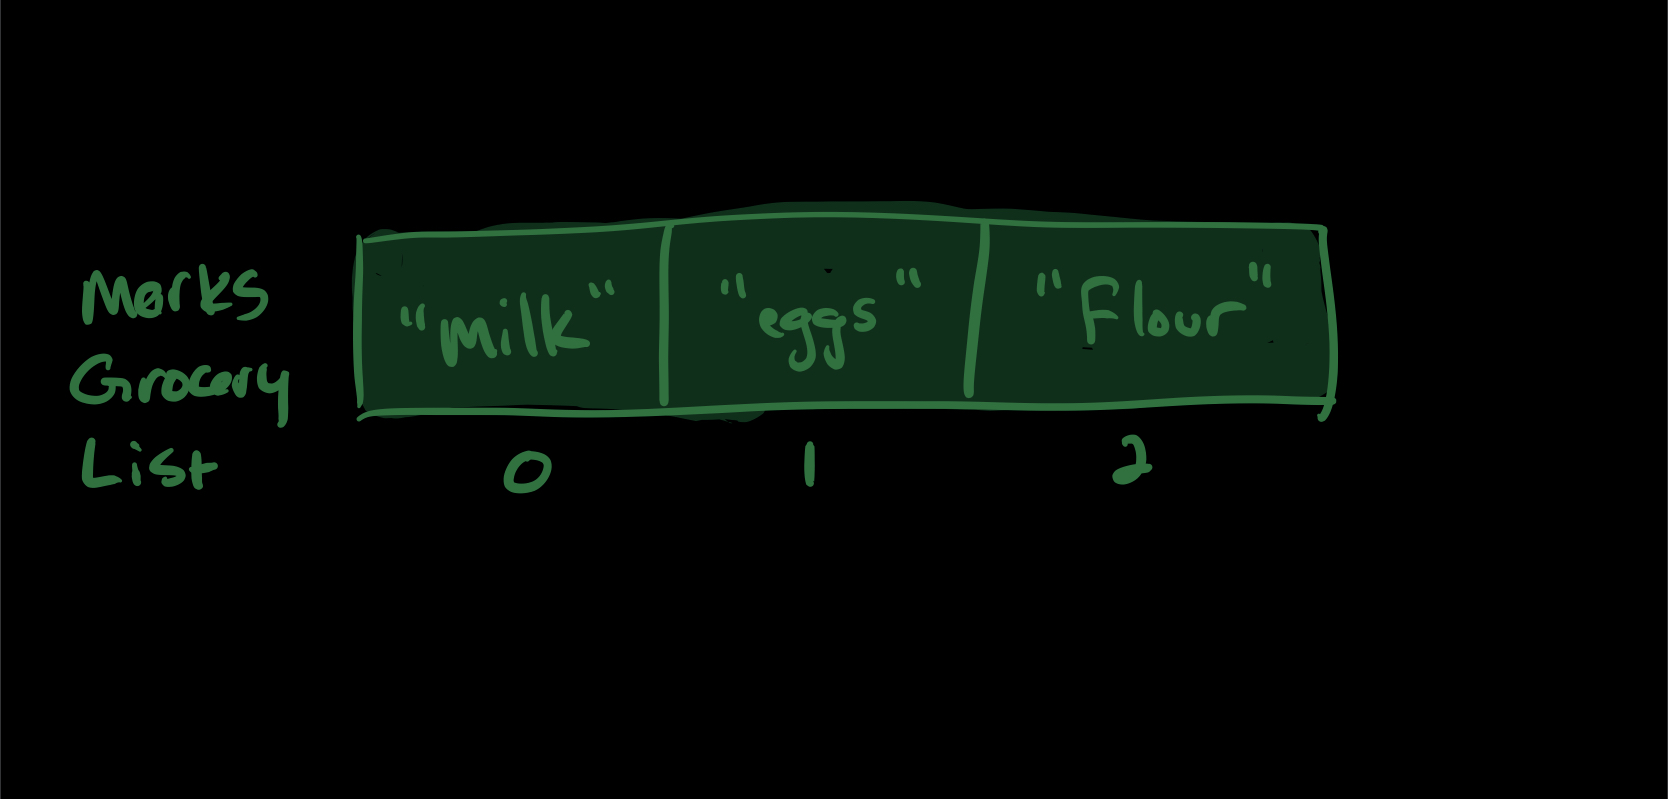 Marks
Grocery
List
"milk" "eggs" "Flour"
0 1 2